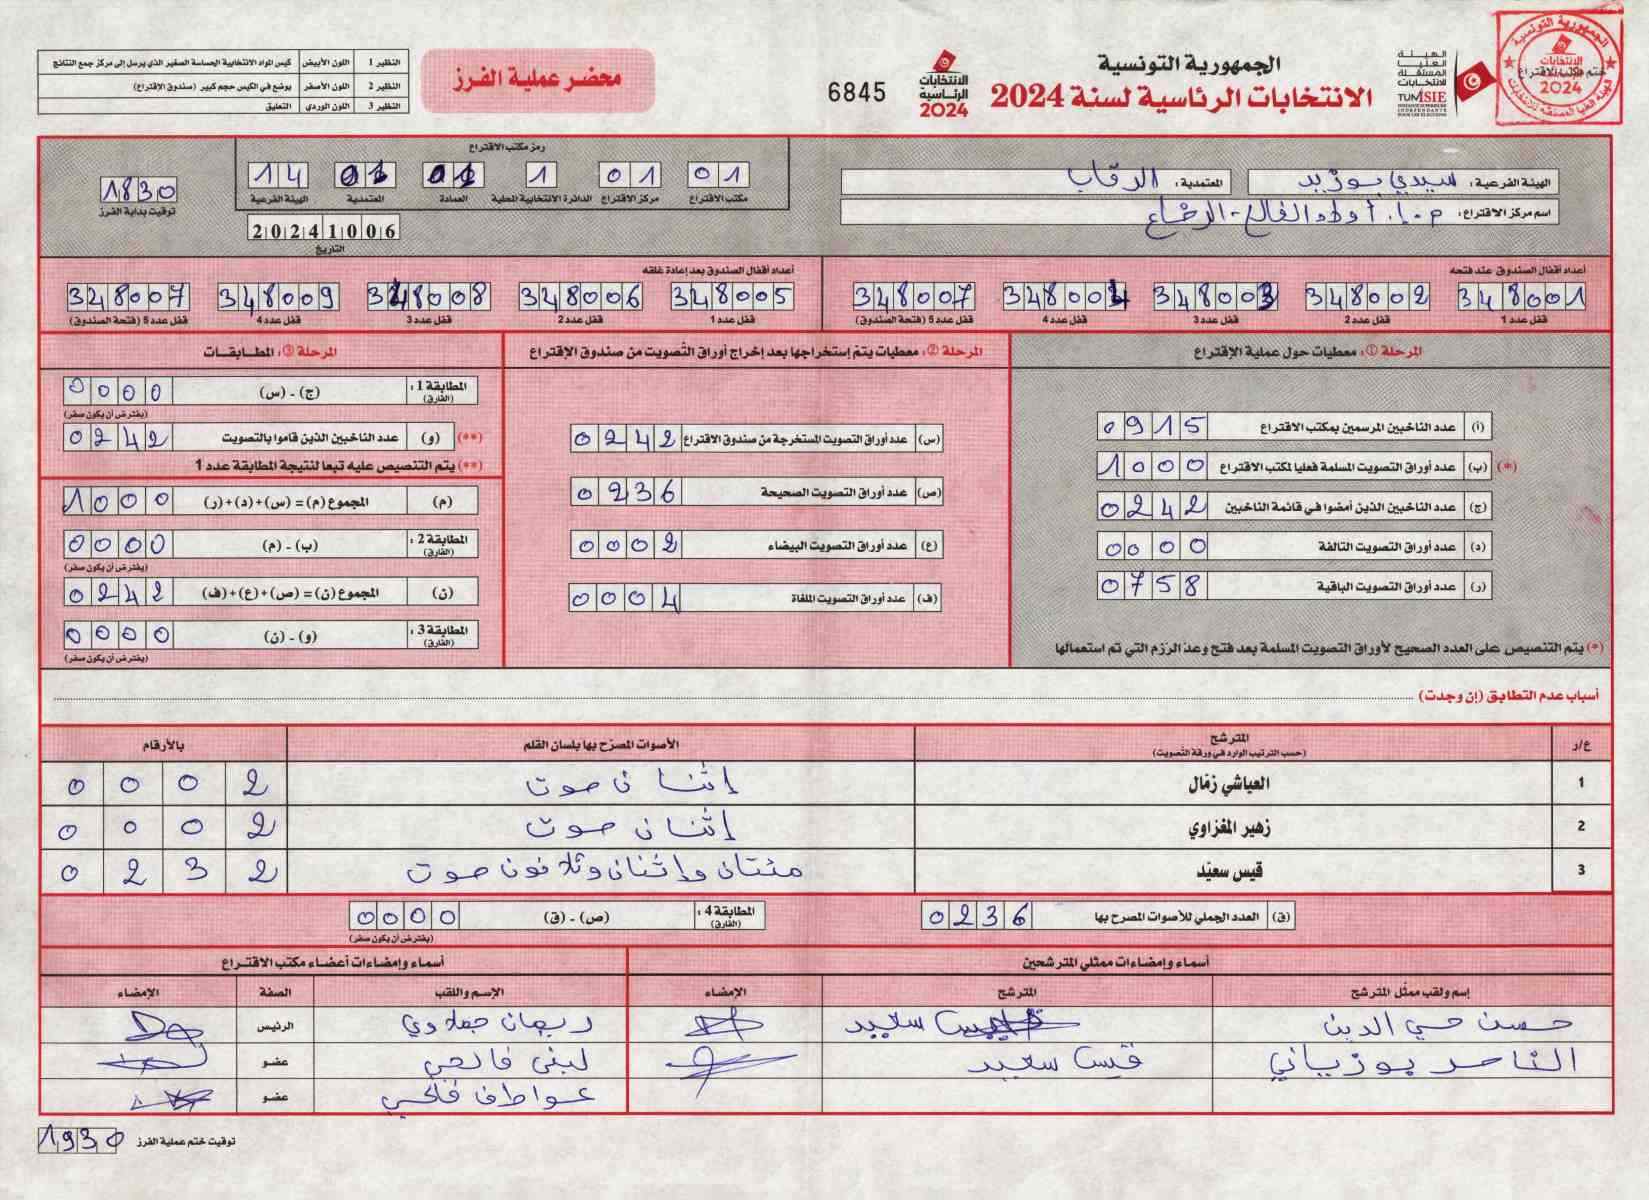 الجمهورية التونسية
الانتخابات الرئاسية لسنة 2024
الهيئة العليا المستقلة للانتخابات
TUNISIE
الجمهورية التونسية
الانتخابات الرئاسية 2024
ختم مكتب الاقتراع
الانتخابات الرئاسية 2024
6845
محضر عملية الفرز
النظير 1 اللون الأبيض كيس المواد الانتخابية الحساسة الصغير الذي يرسل إلى مركز جمع النتائج
النظير 2 اللون الأصفر يوضع في الكيس حجم كبير (صندوق الإقتراع)
النظير 3 اللون الوردي التعليق
الهيئة الفرعية: سيدي بوزيد المعتمدية: الرقاب
اسم مركز الاقتراع: م.إ. أولاد الفالح - الرضاع
رمز مكتب الاقتراع
01 01 1 01 01 14
مكتب الاقتراع مركز الاقتراع الدائرة الانتخابية المحلية العمادة المعتمدية الهيئة الفرعية
1830
توقيت بداية الفرز
20241006
التاريخ
أعداد أقفال الصندوق عند فتحه
348001 348002 348003 348004 348007
قفل عدد 1 قفل عدد 2 قفل عدد 3 قفل عدد 4 قفل عدد 5 (فتحة الصندوق)
أعداد أقفال الصندوق بعد إعادة غلقه
348005 348006 348008 348009 348007
قفل عدد 1 قفل عدد 2 قفل عدد 3 قفل عدد 4 قفل عدد 5 (فتحة الصندوق)
المرحلة ①: معطيات حول عملية الإقتراع
(أ) عدد الناخبين المرسمين بمكتب الاقتراع 0915
(*) (ب) عدد أوراق التصويت المسلمة فعليا لمكتب الاقتراع 1000
(ج) عدد الناخبين الذين أمضوا في قائمة الناخبين 0242
(د) عدد أوراق التصويت التالفة 0000
(ر) عدد أوراق التصويت الباقية 0758
(*) يتم التنصيص على العدد الصحيح لأوراق التصويت المسلمة بعد فتح وعدّ الرزم التي تم استعمالها
المرحلة ②: معطيات يتم إستخراجها بعد إخراج أوراق التصويت من صندوق الإقتراع
(س) عدد أوراق التصويت المستخرجة من صندوق الاقتراع 0242
(ص) عدد أوراق التصويت الصحيحة 0236
(ع) عدد أوراق التصويت البيضاء 0002
(ف) عدد أوراق التصويت الملغاة 0004
المرحلة ③: المطابقات
المطابقة 1: (الفارق) (ج) - (س) 0000
(يفترض أن يكون صفر)
(**) (و) عدد الناخبين الذين قاموا بالتصويت 0242
(**) يتم التنصيص عليه تبعا لنتيجة المطابقة عدد 1
(م) المجموع (م) = (س)+(د)+(ر) 1000
المطابقة 2: (الفارق) (ب) - (م) 0000
(يفترض أن يكون صفر)
(ن) المجموع (ن) = (ص)+(ع)+(ف) 0242
المطابقة 3: (الفارق) (و) - (ن) 0000
(يفترض أن يكون صفر)
أسباب عدم التطابق (إن وجدت)
ع/ر المترشح (حسب الترتيب الوارد في ورقة التصويت) الأصوات المصرّح بها بلسان القلم بالأرقام
1 العياشي زمّال إثنان صوت 0002
2 زهير المغزاوي إثنان صوت 0002
3 قيس سعيّد مئتان وإثنان وثلاثون صوت 0232
(ق) العدد الجملي للأصوات المصرح بها 0236
المطابقة 4: (الفارق) (ص) - (ق) 0000
(يفترض أن يكون صفر)
أسماء وإمضاءات ممثلي المترشحين
إسم ولقب ممثّل المترشح المترشح الإمضاء
قيس سعيد
الناصر بوزياني قيس سعيد
أسماء وإمضاءات أعضاء مكتب الاقتراع
الإسم واللقب الصفة الإمضاء
الرئيس
لبنى فالحي عضو
عواطف فالحي عضو
توقيت ختم عملية الفرز 1930